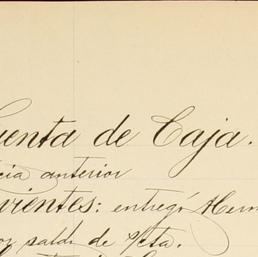 uenta de Caja.
cia anterior
rientes: entregó Hern
or saldo de s/cta.